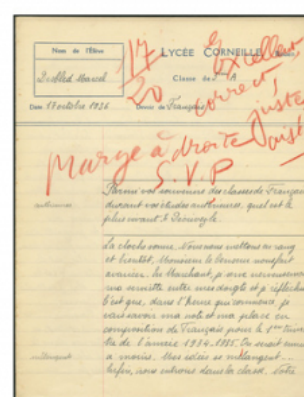 Nom de l'Élève
LYCÉE CORNEILLE
Classe de A
Date 17 octobre 1936
Devoir de Français
17
20
Excellent
correct
juste
Marge à droite
S.V.P
Parmi vos souvenirs des classes de Français
durant vos études antérieures, quel est le
plus vivant ? Décrivez-le.
La cloche sonne. Nous nous mettons en rang
et bientôt, Monsieur le Censeur nous fait
avancer. En marchant, je serre nerveusement
ma serviette entre mes doigts et je réfléchis
C'est que, dans l'heure qui commence, je
vais savoir ma note et ma place en
composition de Français pour le 1er
de l'année 1934-1935. On serait ému
à moins. Mes idées se mélangent...
Enfin, nous entrons dans la classe. Notre